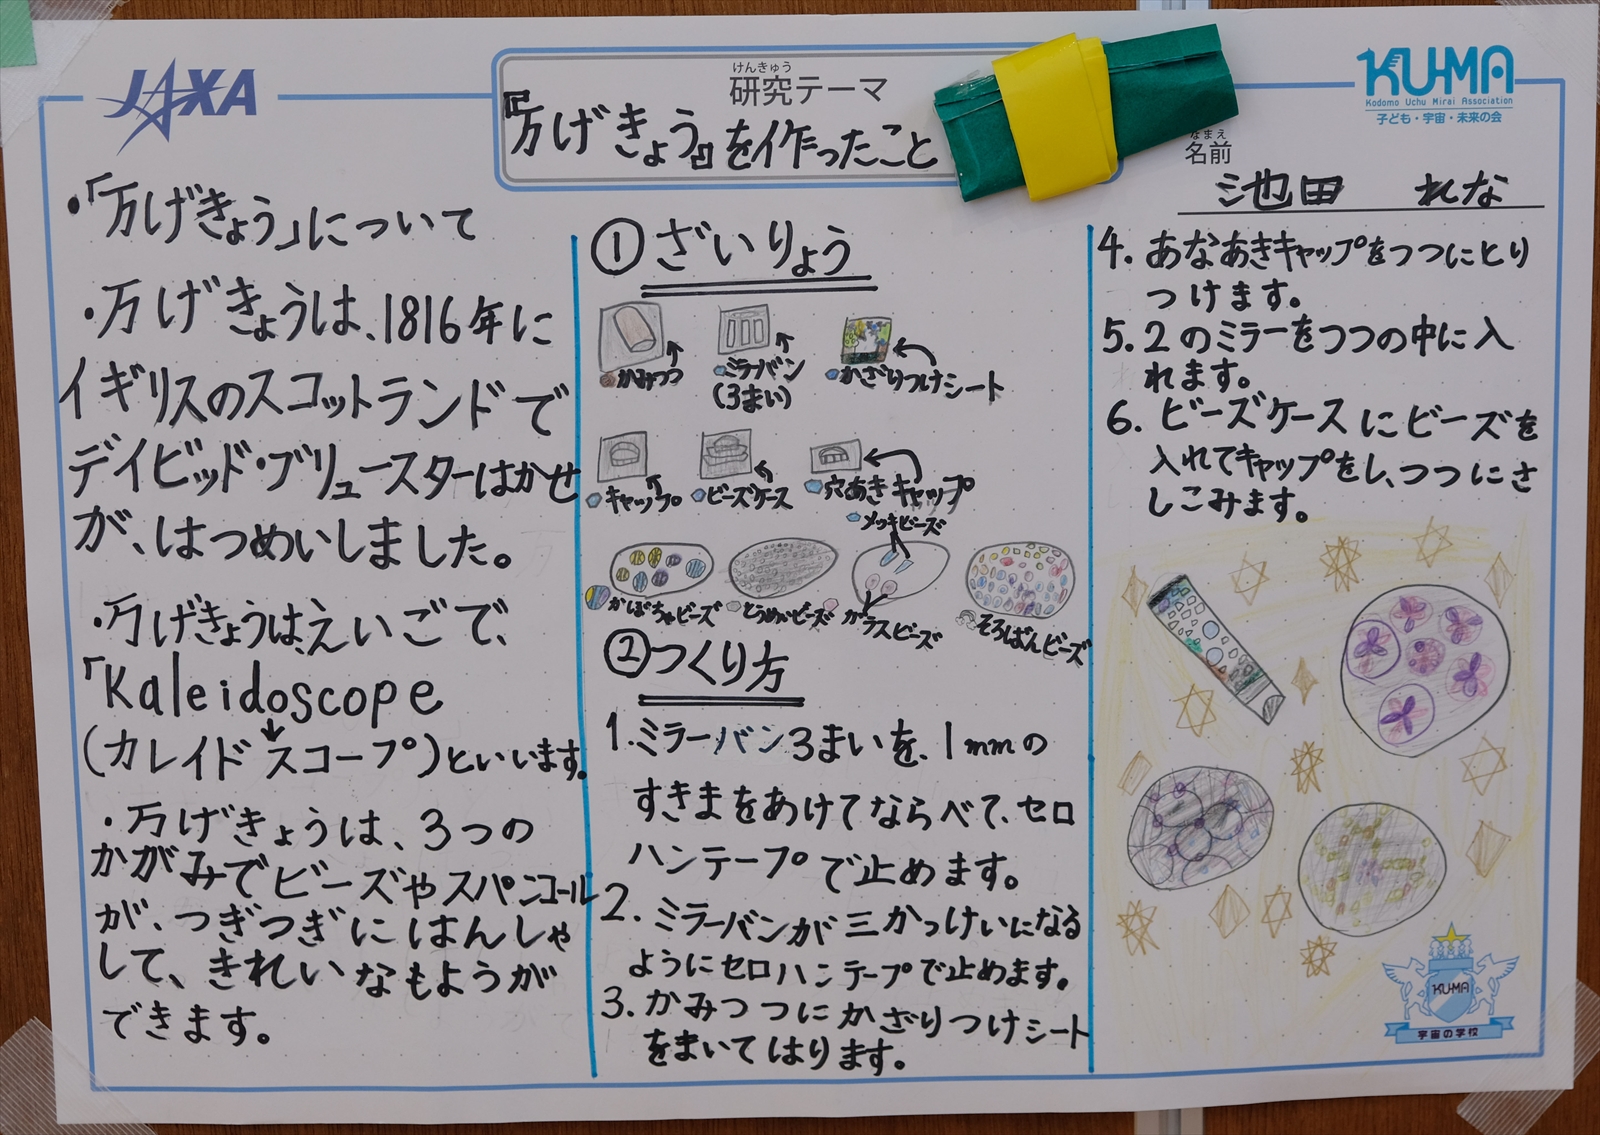 JAXA
けんきゅう
研究テーマ
『万げきょう』を作ったこと
KU-MA
Kodomo Uchu Mirai Association
子ども・宇宙・未来の会
なまえ
名前
池田 れな
・「万げきょう」について
・万げきょうは、1816年に
イギリスのスコットランドで
デイビッド・ブリュースターはかせ
が、はつめいしました。
・万げきょうは、えいごで、
「Kaleidoscope
(カレイドスコープ)といいます。
・万げきょうは、3つの
かがみでビーズやスパンコール
が、つぎつぎにはんしゃ
して、きれいなもようが
できます。
①ざいりょう
かみつつ
ミラーバン
(3まい)
かざりつけシート
キャップ
ビーズケース
穴あきキャップ
メッキビーズ
かぼちゃビーズ
とうめいビーズ
ガラスビーズ
そろばんビーズ
②つくり方
1.ミラーバン3まいを、1mmの
すきまをあけてならべて、セロ
ハンテープで止めます。
2.ミラーバンが三かっけいになる
ようにセロハンテープで止めます。
3.かみつつにかざりつけシート
をまいてはります。
4.あなあきキャップをつつにとり
つけます。
5.2のミラーをつつの中に入
れます。
6.ビーズケースにビーズを
入れてキャップをし、つつにさ
しこみます。
KU-MA
宇宙の学校